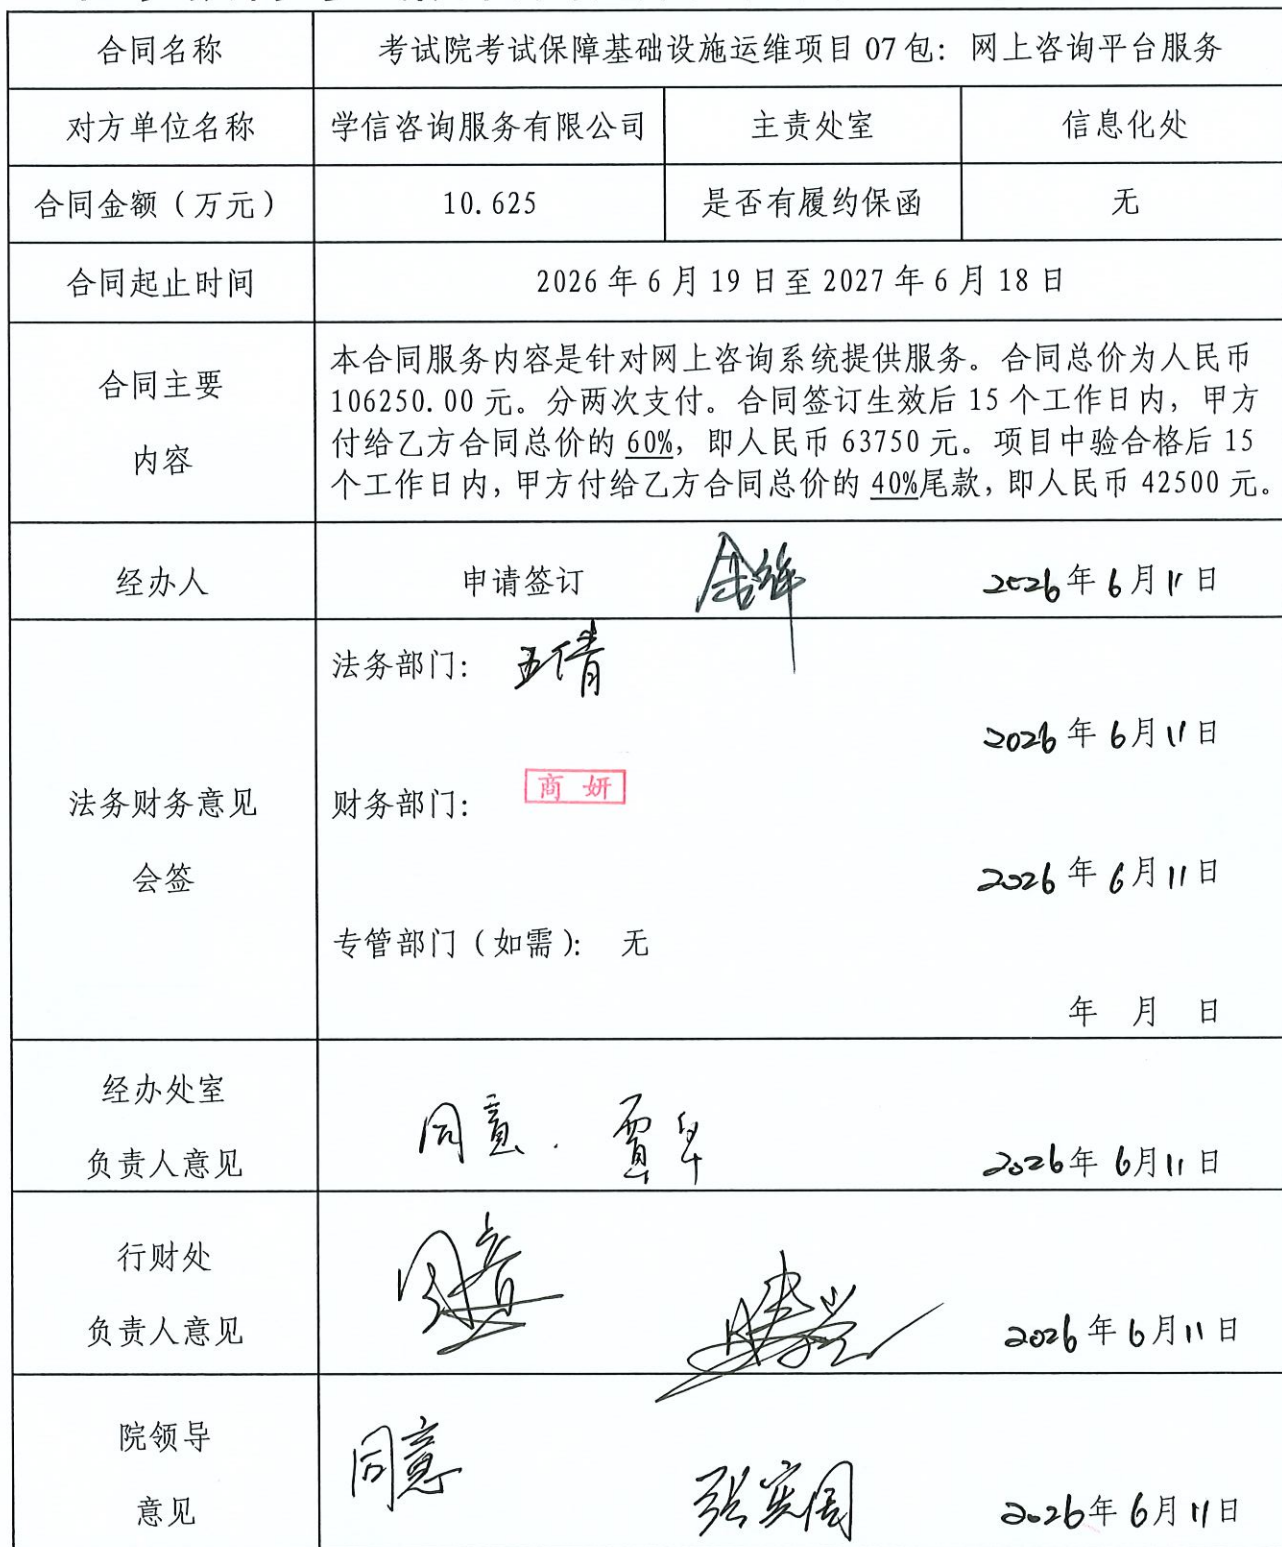 合同名称 考试院考试保障基础设施运维项目 07 包：网上咨询平台服务
对方单位名称 学信咨询服务有限公司 主责处室 信息化处
合同金额（万元） 10.625 是否有履约保函 无
合同起止时间 2026 年 6 月 19 日至 2027 年 6 月 18 日
合同主要
内容
本合同服务内容是针对网上咨询系统提供服务。合同总价为人民币
106250.00 元。分两次支付。合同签订生效后 15 个工作日内，甲方
付给乙方合同总价的 60%，即人民币 63750 元。项目中验合格后 15
个工作日内，甲方付给乙方合同总价的 40%尾款，即人民币 42500 元。
经办人 申请签订 2026年 6月 11日
法务财务意见
会签
法务部门：
2026 年 6月 11日
财务部门： 商 妍
2026 年 6月 11日
专管部门（如需）： 无
年 月 日
经办处室
负责人意见
同意. 2026年 6月 11日
行财处
负责人意见
同意 2026年 6月 11日
院领导
意见
同意 2026年 6月 11日